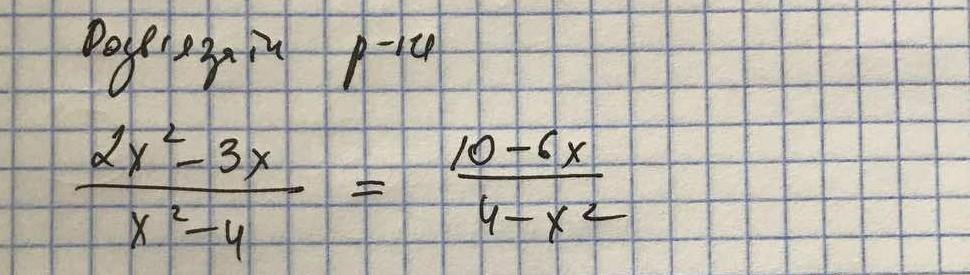 Розв'язати р-ня
2x² - 3x / x² - 4 = 10 - 6x / 4 - x²